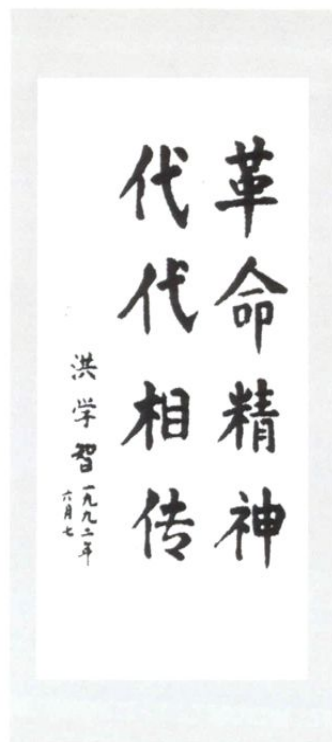 革命精神
代代相传
洪学智
一九九二年
六月七